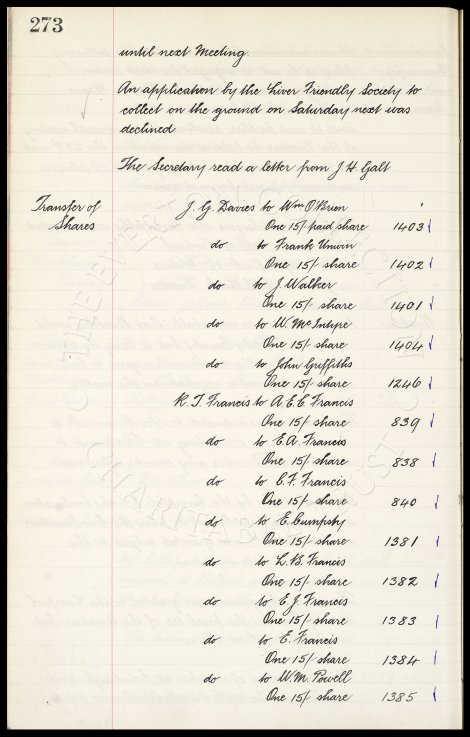 273
until next Meeting.
An application by the Liver Friendly Society to
collect on the ground on Saturday next was
declined
The Secretary read a letter from J H Galt
Transfer of Shares
J. G. Davies to Wm O'Brien
One 15/- paid share 1403
do to Frank Unwin
One 15/- share 1402
do to J. Walker
One 15/- share 1401
do to W. McIntyre
One 15/- share 1404
do to John Griffiths
One 15/- share 1246
R. T. Francis to A. E. C. Francis
One 15/- share 839
do to E. A. Francis
One 15/- share 838
do to C. F. Francis
One 15/- share 840
do to E. Cumpsty
One 15/- share 1381
do to L. B. Francis
One 15/- share 1382
do to E. J. Francis
One 15/- share 1383
do to E. Francis
One 15/- share 1384
do to W. M. Powell
One 15/- share 1385
THE EVERTON COLLECTION
CHARITABLE TRUST